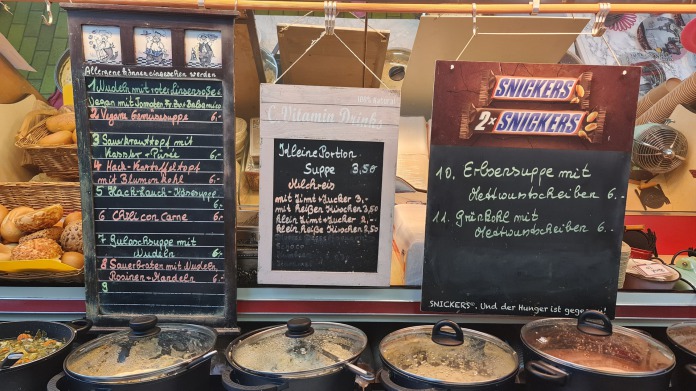 Allergene können eingesehen werden
1 Nudeln mit roter Linsensoße
Vegan mit Tomaten, Fr. Bas. Balsamico
2 Vegane Gemüsesuppe 6.-
3 Sauerkrauttopf mit
Kassler + Püree 6.-
4 Hack-Kartoffeltopf
mit Blumenkohl 6.-
5 Hack-Lauch-Käsesuppe 6.-
6 Chili con Carne 6.-
7 Gulaschsuppe mit
Nudeln 6.-
8 Sauerbraten mit Nudeln
Rosinen + Mandeln 6.-
9
C Vitamin Drinks
Kleine Portion
Suppe 3,50
Milchreis
mit Zimt + Zucker 3,-
mit heißen Kirschen 3,50
klein Zimt + Zucker 2,-
klein heiße Kirschen 2,50
SNICKERS
2x SNICKERS
10. Erbsensuppe mit
Mettwurstscheiben 6.-
11. Grünkohl mit
Mettwurstscheiben 6.-
SNICKERS®. Und der Hunger ist gegessen!